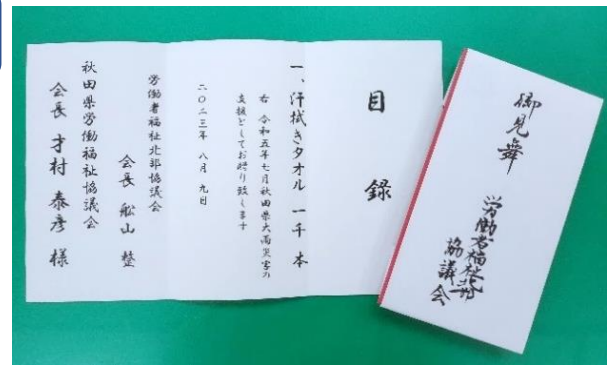 目録
一、汗拭きタオル 一千本
右 令和五年七月秋田県大雨災害の
支援としてお贈り致します
二〇二三年 八月 九日
労働者福祉北部協議会
会長 舩山 整
秋田県労働福祉協議会
会長 才村 泰彦 様
御見舞
労働者福祉北部
協議会